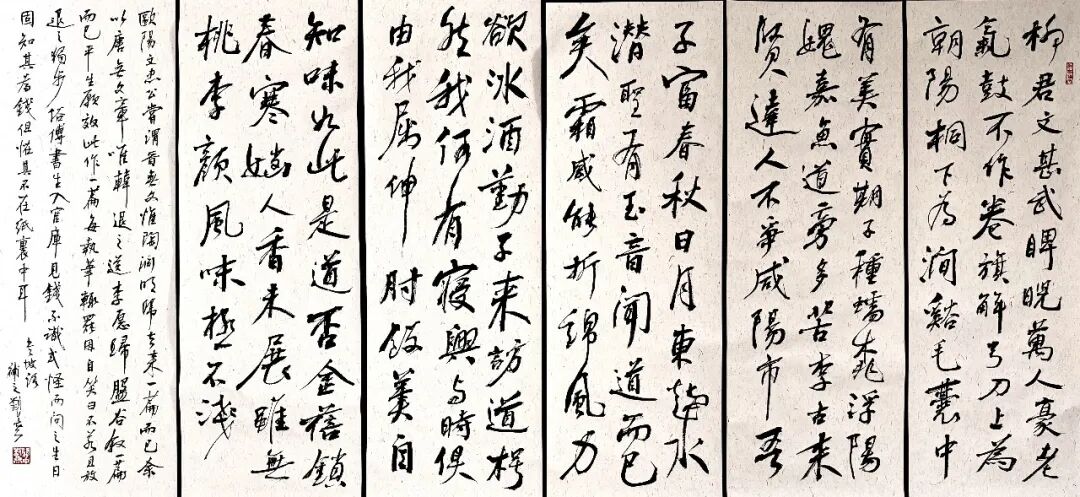 柳君文甚武睥睨萬人豪老
氣鼓不作卷旗解弓刀上為
朝陽桐下為澗谿毛囊中
有美實期子種蟠桃浮陽
媿嘉魚道旁多苦李古來
賢達人不爭咸陽市吾
子富春秋日月東趨水
潛聖有玉音聞道而已
矣霜威能折綿風力
欲冰酒勸子來訪道枵
然我何有寢興與時俱
由我屈伸肘飯羹自
知味如此是道否金蓓鎖
春寒惱人香未展雖無
桃李顏風味極不淺
歐陽文忠公嘗謂晉無文惟陶淵明歸去來一篇而已余
以唐無文章唯韓退之送李愿歸盤谷敘一篇
而已平生願效此作一篇每執筆輒罷因自笑曰不若且放
退之獨步 俗傳書生入官庫見錢不識或怪而問之生曰
固知其為錢但怪其不在紙裏中耳 東坡語